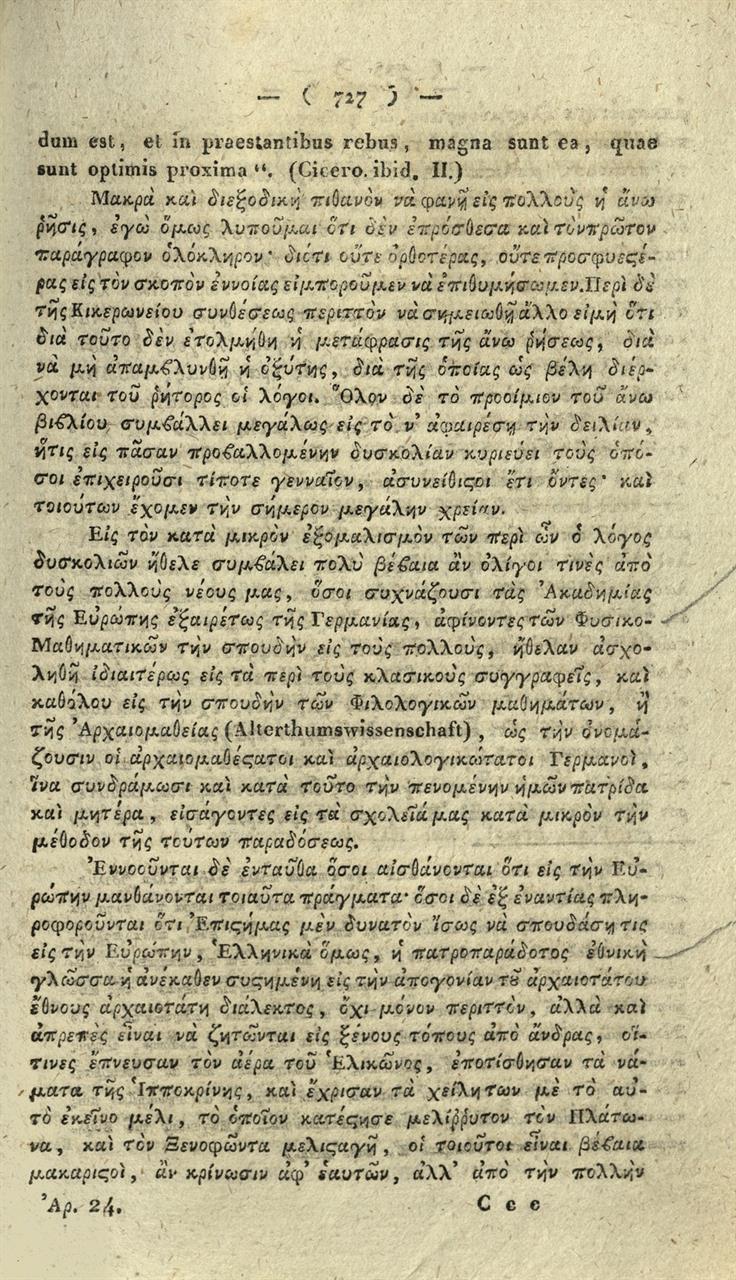 — ( 727 ) —
dum est, et in praestantibus rebus, magna sunt ea, quae
sunt optimis proxima “. (Cicero. ibid. II.)
Μακρὰ καὶ διεξοδικὴ πιθανὸν νὰ φανῇ εἰς πολλοὺς ἡ ἄνω
ῥῆσις, ἐγὼ ὅμως λυποῦμαι ὅτι δὲν ἐπρόσθεσα καὶ τὸν πρῶτον
παράγραφον ὁλόκληρον· διότι οὔτε ὀρθοτέρας, οὔτε προσφυεϛέ-
ρας εἰς τὸν σκοπὸν ἐννοίας εἰμποροῦμεν νὰ ἐπιθυμήσωμεν. Περὶ δὲ
τῆς Κικερωνείου συνθέσεως περιττὸν νὰ σημειωθῇ ἄλλο εἰμὴ ὅτι
διὰ τοῦτο δὲν ἐτολμήθη ἡ μετάφρασις τῆς ἄνω ῥήσεως, διὰ
νὰ μὴ ἀπαμϐλυνθῇ ἡ ὀξύτης, διὰ τῆς ὁποίας ὡς βέλη διέρ-
χονται τοῦ ῥήτορος οἱ λόγοι. Ὅλον δὲ τὸ προοίμιον τοῦ ἄνω
βιϐλίου συμϐάλλει μεγάλως εἰς τὸ ν’ ἀφαιρέσῃ τὴν δειλίαν,
ἥτις εἰς πᾶσαν προϐαλλομένην δυσκολίαν κυριεύει τοὺς ὁπό-
σοι ἐπιχειροῦσι τίποτε γενναῖον, ἀσυνείθιϛοι ἔτι ὄντες· καὶ
τοιούτων ἔχομεν τὴν σήμερον μεγάλην χρείαν.
Εἰς τὸν κατὰ μικρὸν ἐξομαλισμὸν τῶν περὶ ὧν ὁ λόγος
δυσκολιῶν ἤθελε συμϐάλει πολὺ βέϐαια ἂν ὀλίγοι τινὲς ἀπὸ
τοὺς πολλοὺς νέους μας, ὅσοι συχνάζουσι τὰς Ἀκαδημίας
τῆς Εὐρώπης ἐξαιρέτως τῆς Γερμανίας, ἀφίνοντες τῶν Φυσικο-
Μαθηματικῶν τὴν σπουδὴν εἰς τοὺς πολλοὺς, ἤθελαν ἀσχο-
ληθῇ ἰδιαιτέρως εἰς τὰ περὶ τοὺς κλασικοὺς συγγραφεῖς, καὶ
καθόλου εἰς τὴν σπουδὴν τῶν Φιλολογικῶν μαθημάτων, ἢ
τῆς Ἀρχαιομαθείας (Alterthumswissenschaft), ὡς τὴν ὀνομά-
ζουσιν οἱ ἀρχαιομαθέϛατοι καὶ ἀρχαιολογικώτατοι Γερμανοὶ,
ἵνα συνδράμωσι καὶ κατὰ τοῦτο τὴν πενομένην ἡμῶν πατρίδα
καὶ μητέρα, εἰσάγοντες εἰς τὰ σχολεῖά μας κατὰ μικρὸν τὴν
μέθοδον τῆς τούτων παραδόσεως.
Ἐννοοῦνται δὲ ἐνταῦθα ὅσοι αἰσθάνονται ὅτι εἰς τὴν Εὐ-
ρώπην μανθάνονται τοιαῦτα πράγματα· ὅσοι δὲ ἐξ ἐναντίας πλη-
ροφοροῦνται ὅτι Ἐπιϛήμας μὲν δυνατὸν ἴσως νὰ σπουδάσῃ τις
εἰς τὴν Εὐρώπην, Ἑλληνικὰ ὅμως, ἡ πατροπαράδοτος ἐθνικὴ
γλῶσσα ἡ ἀνέκαθεν συϛημένη εἰς τὴν ἀπογονίαν τȣ͂ ἀρχαιοτάτου
ἔθνους ἀρχαιοτάτη διάλεκτος, ὄχι μόνον περιττὸν, ἀλλὰ καὶ
ἀπρεπὲς εἶναι νὰ ζητῶνται εἰς ξένους τόπους ἀπὸ ἄνδρας, οἵ-
τινες ἔπνευσαν τὸν ἀέρα τοῦ Ἑλικῶνος, ἐποτίσθησαν τὰ νά-
ματα τῆς Ἱπποκρίνης, καὶ ἔχρισαν τὰ χείλη των μὲ τὸ αὐ-
τὸ ἐκεῖνο μέλι, τὸ ὁποῖον κατέϛησε μελίῤῥυτον τὸν Πλάτω-
να, καὶ τὸν Ξενοφῶντα μελιϛαγῆ, οἱ τοιοῦτοι εἶναι βέϐαια
μακαριϛοὶ, ἂν κρίνωσιν ἀφ’ ἑαυτῶν, ἀλλ’ ἀπὸ τὴν πολλὴν
Ἀρ. 24. C c c